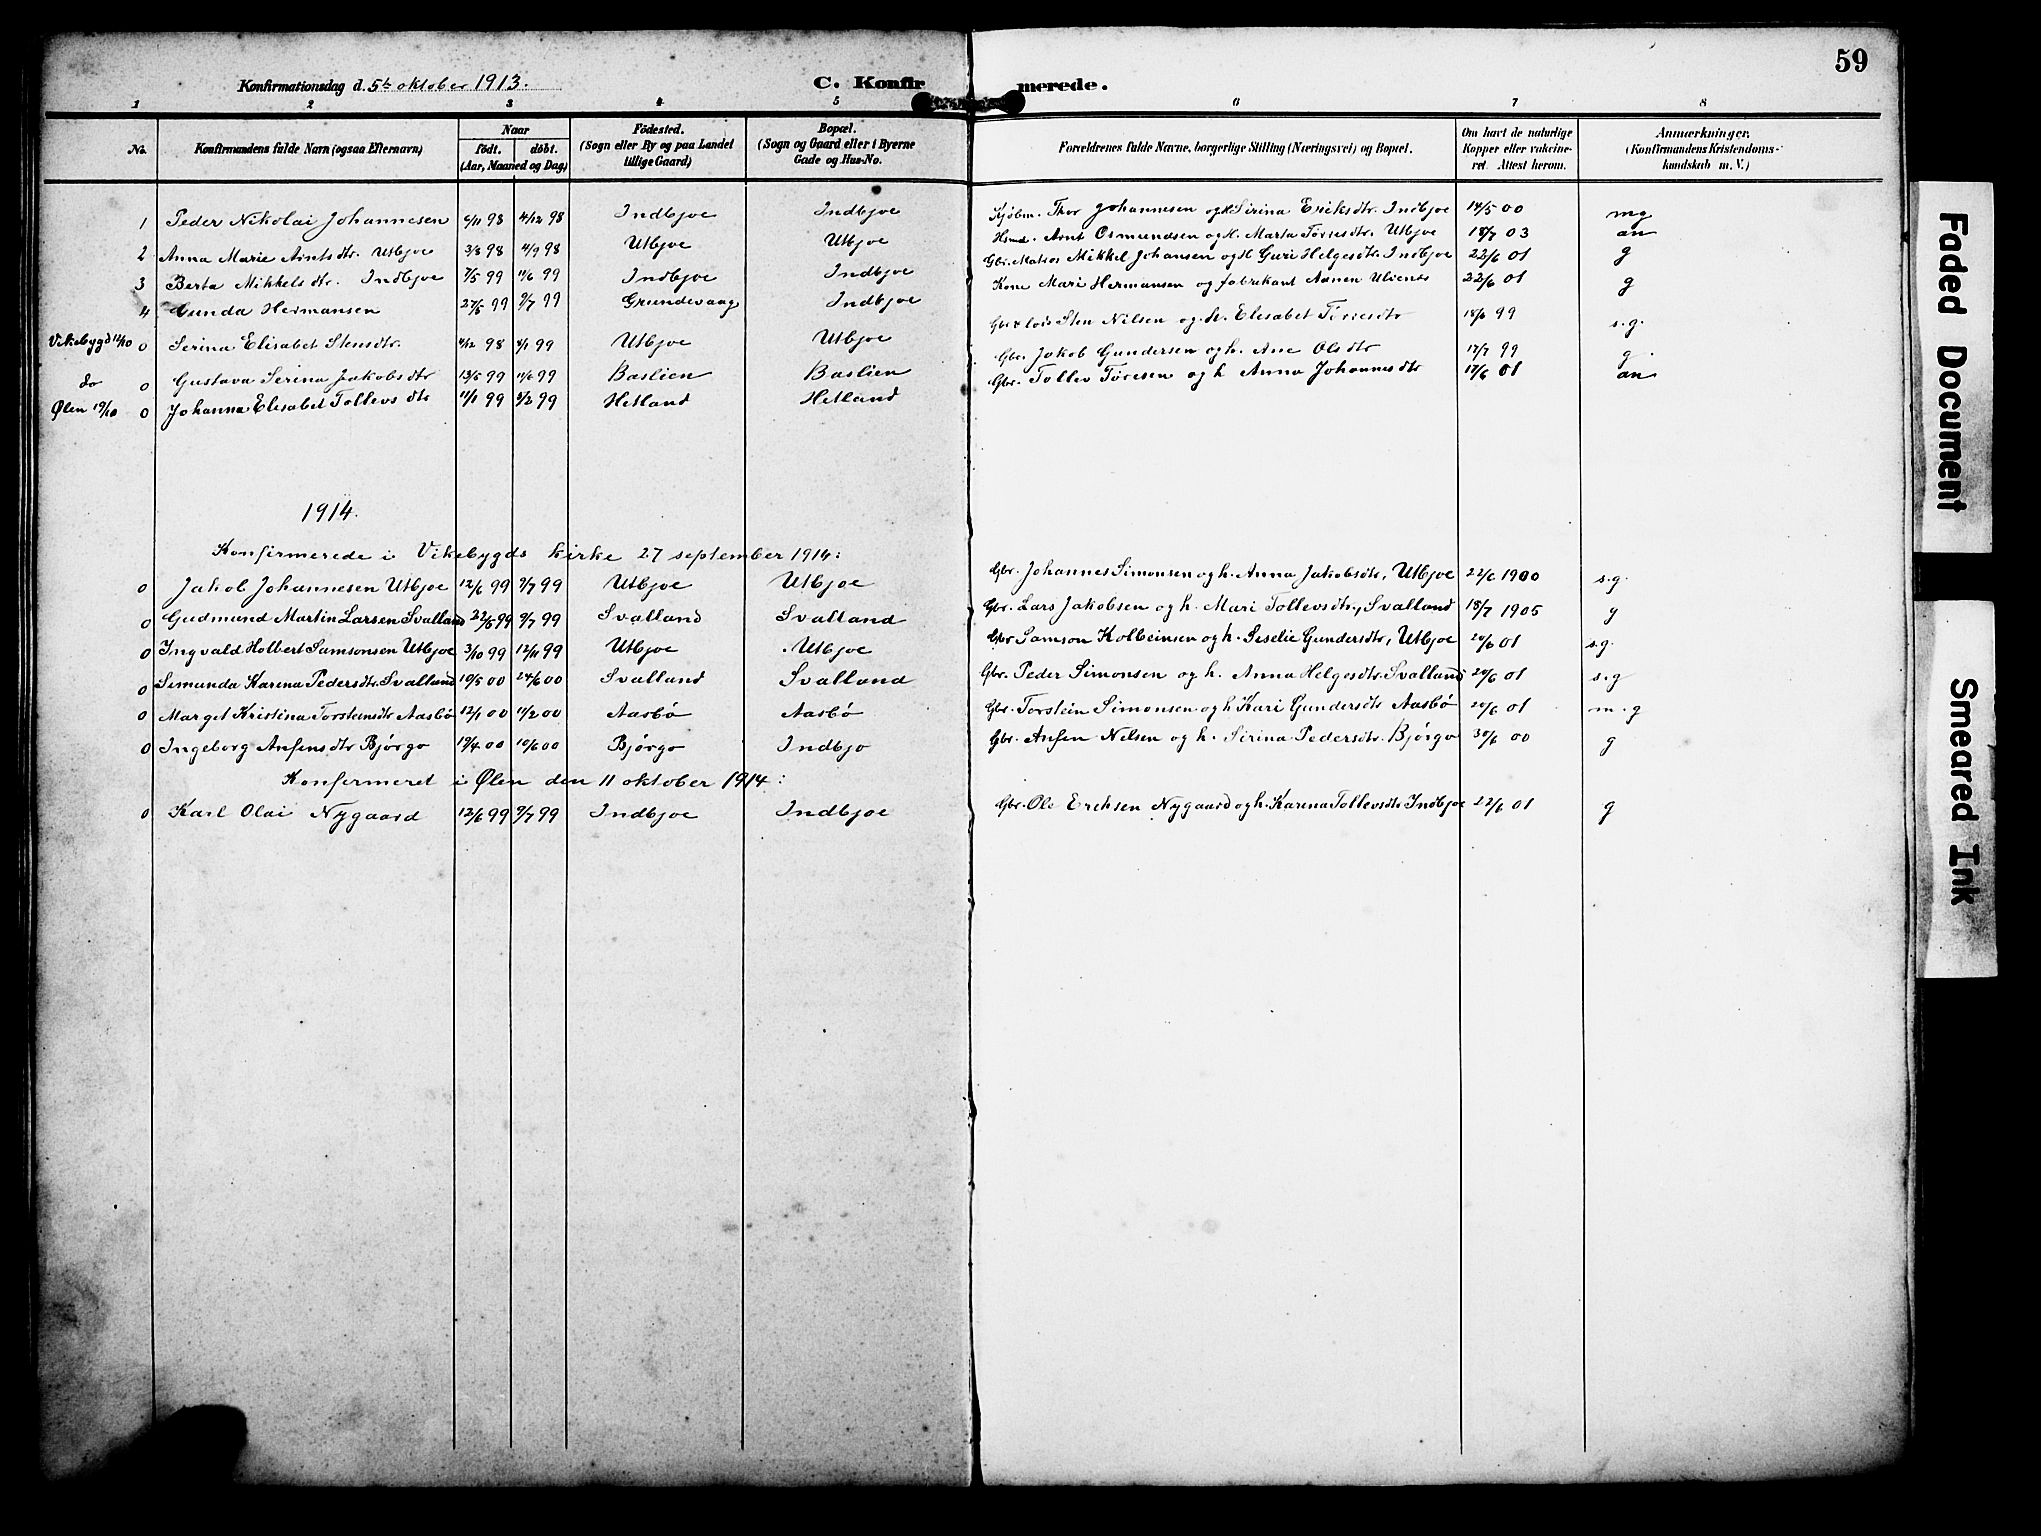 59
Konfirmationsdag d. 5te oktober 1913. C. Konfirmerede.
1 2 3 4 5 6 7 8
No. Konfirmandens fulde Navn (ogsaa Efternavn) Naar födt. döbt. (Aar, Maaned og Dag) Födested. (Sogn eller By og paa Landet tillige Gaard) Bopæl. (Sogn og Gaard eller i Byerne Gade og Hus-No. Forældrenes fulde Navne, borgerlige Stilling (Næringsvei) og Bopæl. Om havt de naturlige Kopper eller vakcineret. Attest herom. Anmærkninger. (Konfirmandens Kristendomskundskab m. V.)
1 Peder Nikolai Johannesen 6/11 98 4/12 98 Indbjoe Indbjoe Kjöbm. Thor Johannesen og h. Sirina Eriksdtr. Indbjoe 14/5 00 mg
2 Anna Marie Arntsdtr. Utbjoe 3/8 98 4/9 98 Utbjoe Utbjoe Hsmd. Arnt Osmundsen og h. Marta Törresdtr. Utbjoe 18/7 03 an
3 Berta Mikkelsdtr. Indbjoe 7/5 99 11/6 99 Indbjoe Indbjoe Gbr. Matros Mikkel Johansen og h. Guri Helgesdtr. Indbjoe 22/6 01 g
4 Gunda Hermansen 27/5 99 9/7 99 Grundevaag Indbjoe Kone Mari Hermansen og fabrikant Aanen 22/6 01 g
Vikebygd 12/10 0 Serina Elisabet Stensdtr. 4/12 98 4/1 99 Utbjoe Utbjoe Gbr. & lods Sten Nilsen og h. Elisabet Törresdtr 18/6 99 s.g.
do 0 Gustava Serina Jakobsdtr 13/5 99 11/6 99 Baslien Baslien Gbr. Jakob Gundersen og h. Ane Olsdtr 17/7 99 g
Ølen 19/10 0 Johanna Elisabet Tollevsdtr 11/1 99 5/2 99 Hetland Hetland Gbr. Tollev Töresen og h Anna Johannesdtr 17/6 01 an
1914.
Konfirmerede i Vikebygds kirke 27 september 1914:
0 Jakob Johannesen Utbjoe 12/6 99 9/7 99 Utbjoe Utbjoe Gbr. Johannes Simonsen og h. Anna Jakobsdtr, Utbjoe 22/6 1900 s.g.
0 Gudmund Martin Larsen Svalland 22/5 99 9/7 99 Svalland Svalland Gbr. Lars Jakobsen og h. Mari Tollevsdtr, Svalland 18/7 1905 g
0 Ingvald Holbert Samsonsen Utbjoe 3/10 99 12/11 99 Utbjoe Utbjoe Gbr Samson Kolbeinsen og h. Seselie Gundersdtr, Utbjoe 20/6 01 s.g.
0 Simunda Karina Pedersdtr. Svalland 10/5 00 24/6 00 Svalland Svalland Gbr. Peder Simonsen og h. Anna Helgesdtr. Svalland 20/6 01 s.g
0 Marget Kristina Torsteinsdtr Aasbø 12/1 00 11/2 00 Aasbø Aasbø Gbr. Torstein Simonsen og h Kari Gundersdtr Aasbø 20/6 01 m.g
0 Ingeborg Anfensdtr Bjørgo 19/4 00 10/6 00 Bjørgo Indbjo Gbr. Anfen Nelsen og h. Sirina Pedersdtr. Bjørgo 30/6 00 g
Konfermeret i Ølen den 11 oktober 1914:
0 Karl Olai Nygaard 12/6 99 9/7 99 Indbjoe Indbjoe Gbr. Ole Ereksen Nygaard og h. Karina Tollevsdtr Indbjoe 22/6 01 g
Faded Document
Smeared Ink